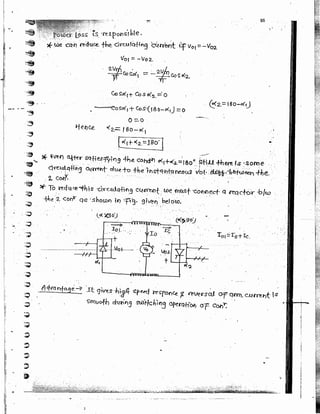 Power Loss is responsible.
* we can reduce the circulating current if V01 = -V02
V01 = -V02.
2Vm/π cosα1 = -2Vm/π cosα2
cosα1 + cosα2 = 0
cosα1 + cos(180-α1) = 0
(α2 = 180-α1)
0 = 0
Hence α2 = 180-α1
α1+α2 = 180°
* Even after satisfying the condn α1+α2=180° still there is some
circulating current due to the instantaneous vol. diff. between the
2 conr.
* To reduce this circulating current we must connect a reactor b/w
the 2 conr as shown in fig. given below.
I01
I0
Ic
V01
V02
α1
α2
I01 = I0 + Ic.
Advantage → It gives high speed response & reversal of arm current is
smooth during switching operation of conr.